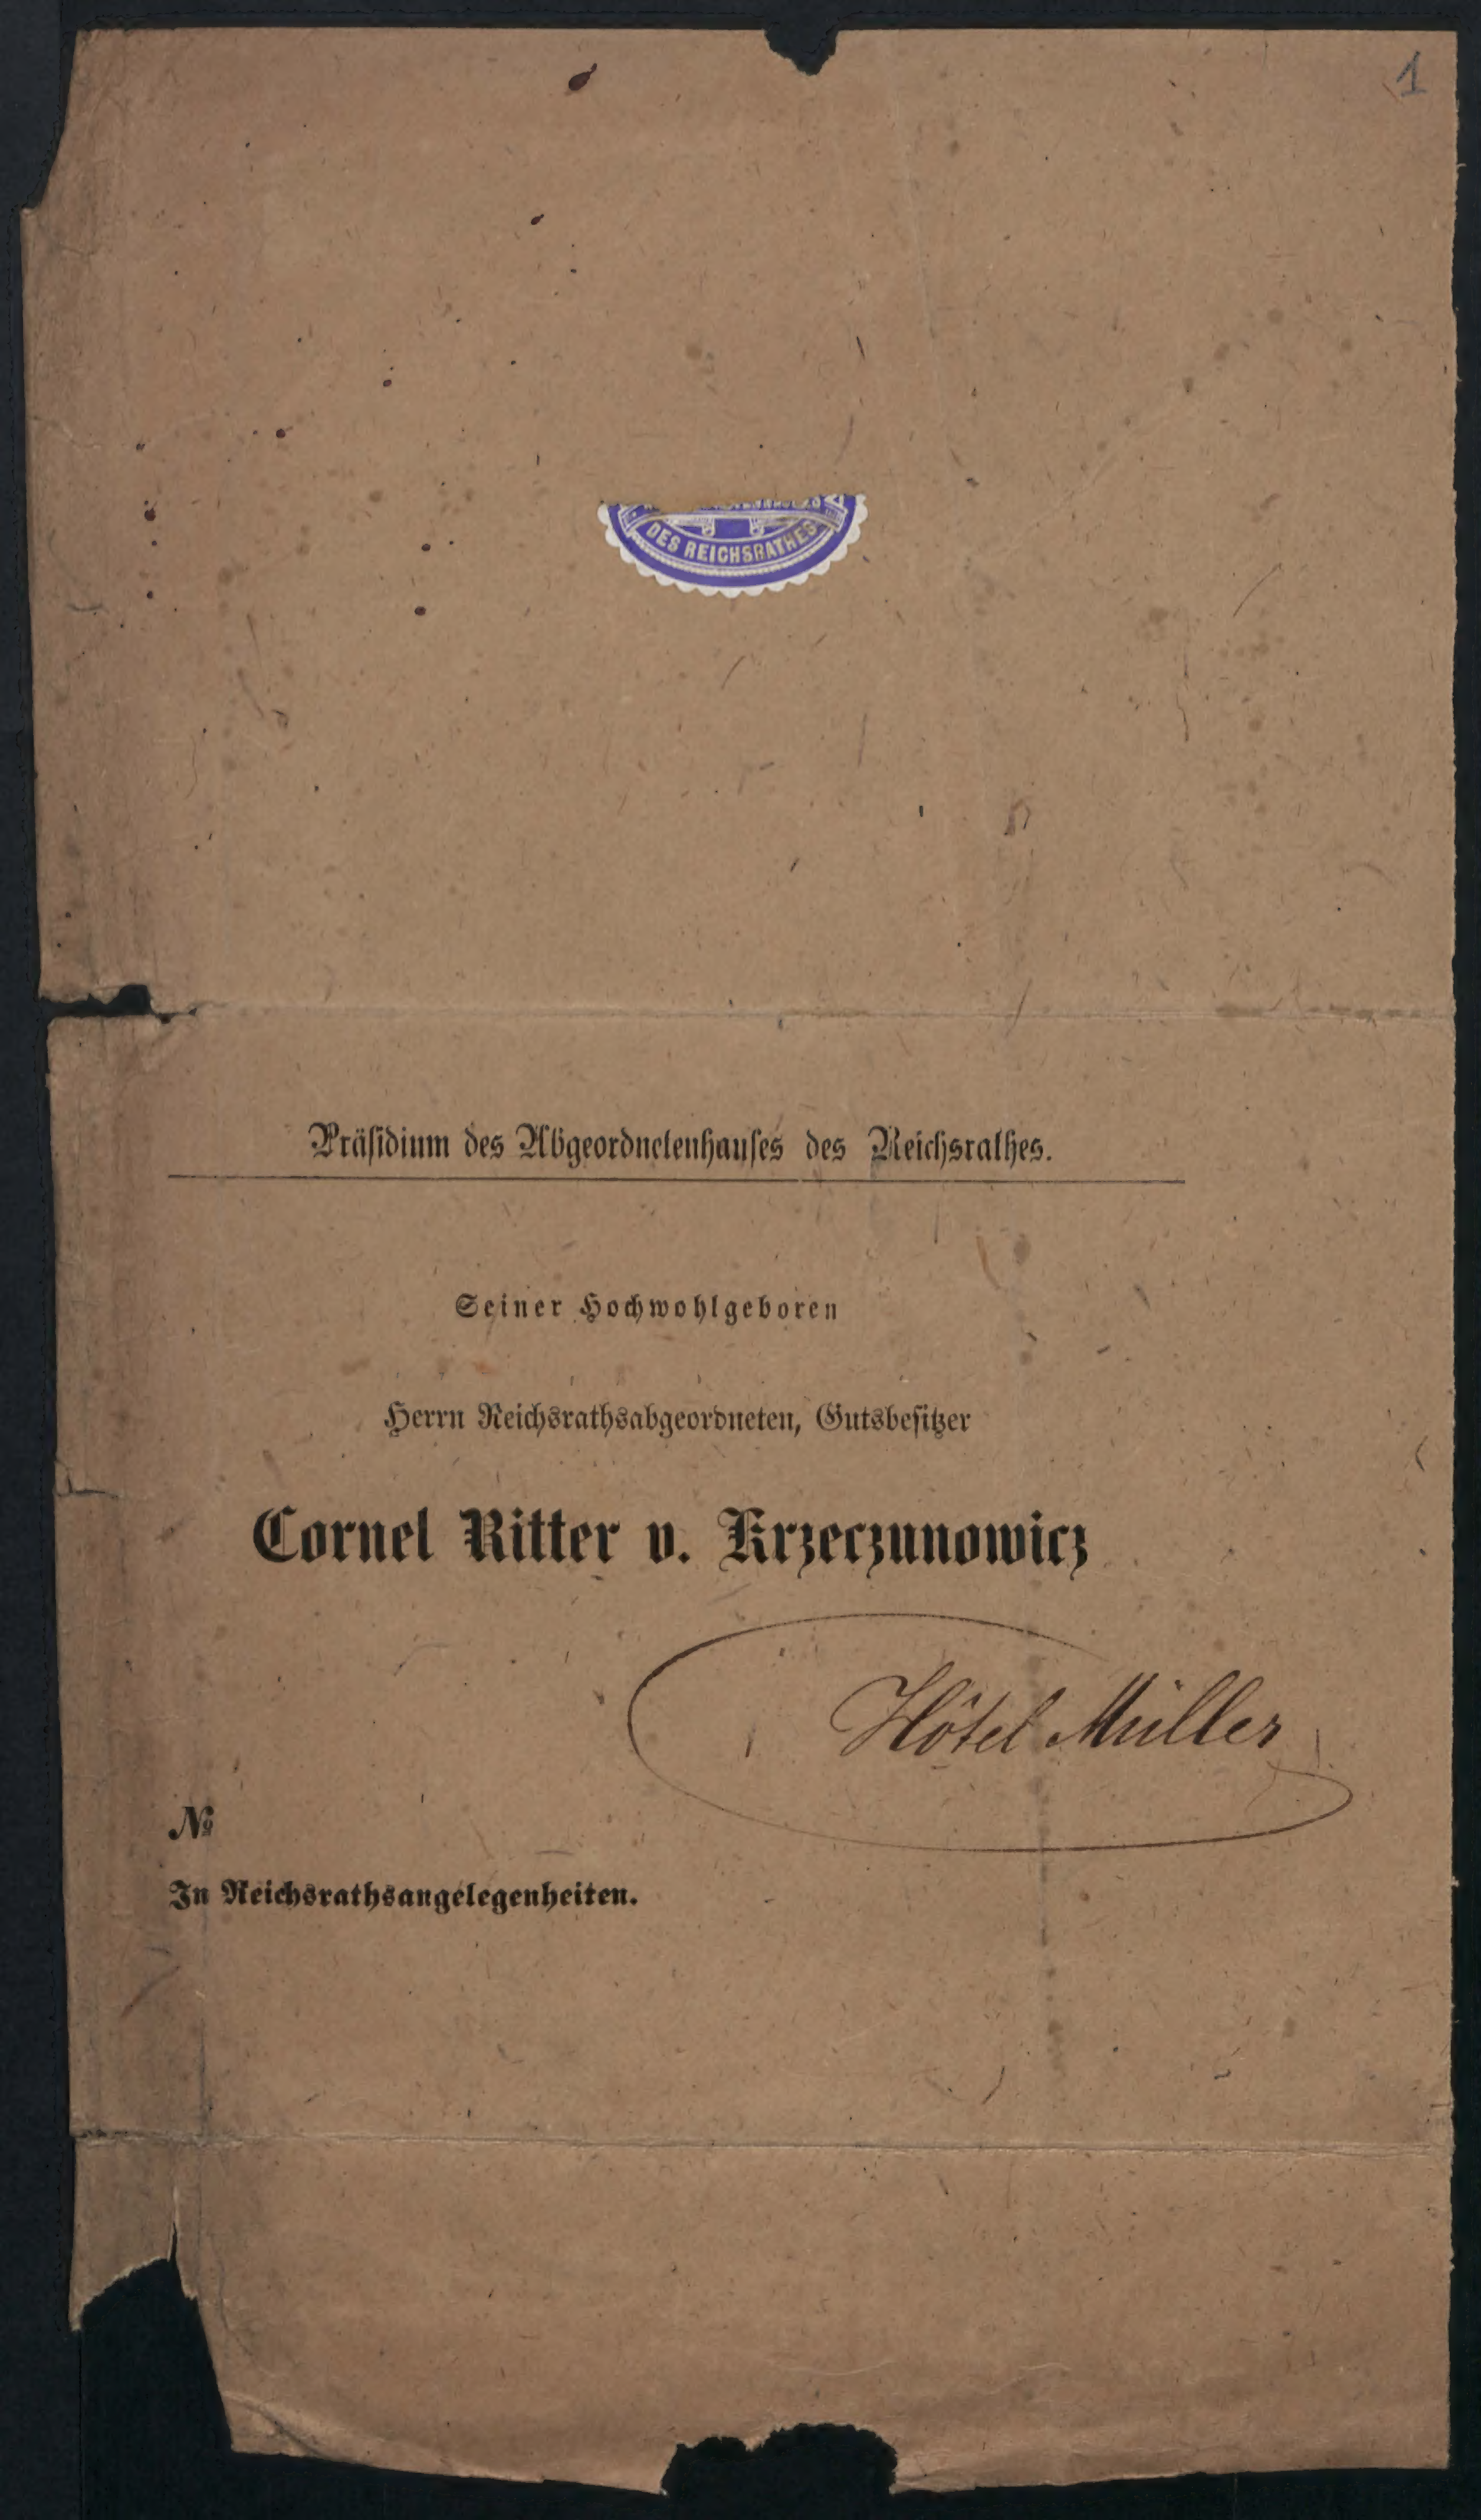 1
DES REICHSRATHES
Präsidium des Abgeordnetenhauses des Reichsrathes.
Seiner Hochwohlgeboren
Herrn Reichsrathsabgeordneten, Gutsbesitzer
Cornel Ritter v. Krzeczunowicz
Hôtel Müller
№
In Reichsrathsangelegenheiten.